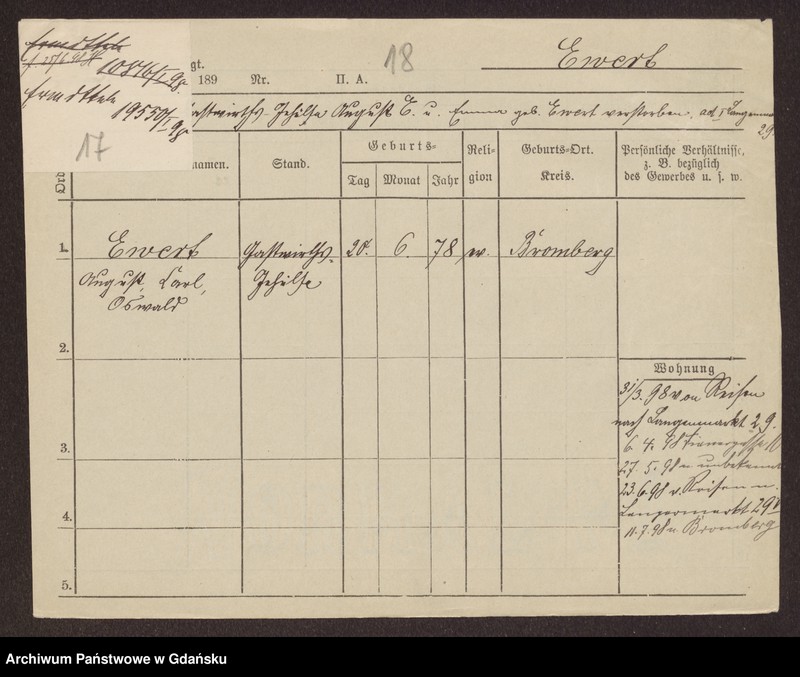 10876/I 98.
19550/I 98
17
18
Ewert
gt.
189 Nr. II. A.
Gastwirths-Gehülfe August E. u. Emma geb. Ewert verstorben, Langenm
29
namen.
Stand.
Geburts-
Tag
Monat
Jahr
Reli-
gion
Geburts-Ort.
Kreis.
Persönliche Verhältnisse,
z. B. bezüglich
des Gewerbes u. s. w.
Ord
1.
Ewert
August, Carl,
Oswald
Gastwirths-
Gehülfe
20.
6.
78
ev.
Bromberg
2.
3.
4.
5.
Wohnung
31/3. 98 von Reisen
nach Langenmarkt 29.
6. 4. 98
27. 5. 98 n unbekannt
23.6.98 v. Reisen n.
Langenmarkt 29
11.7.98 n. Bromberg
Archiwum Państwowe w Gdańsku